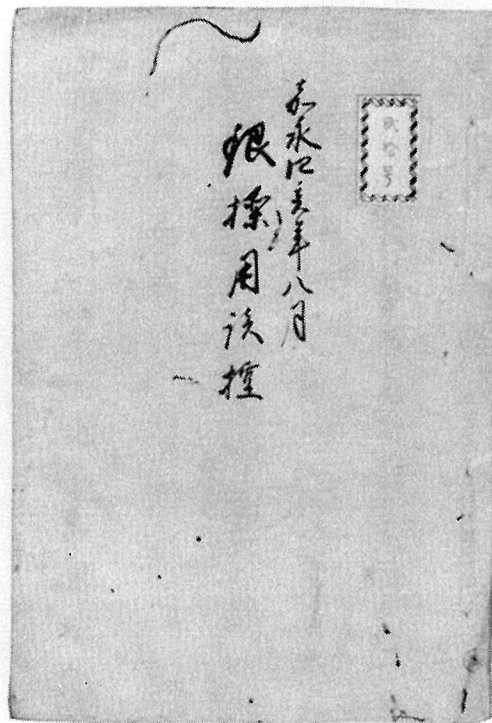 嘉永四亥年八月
銀操用談控